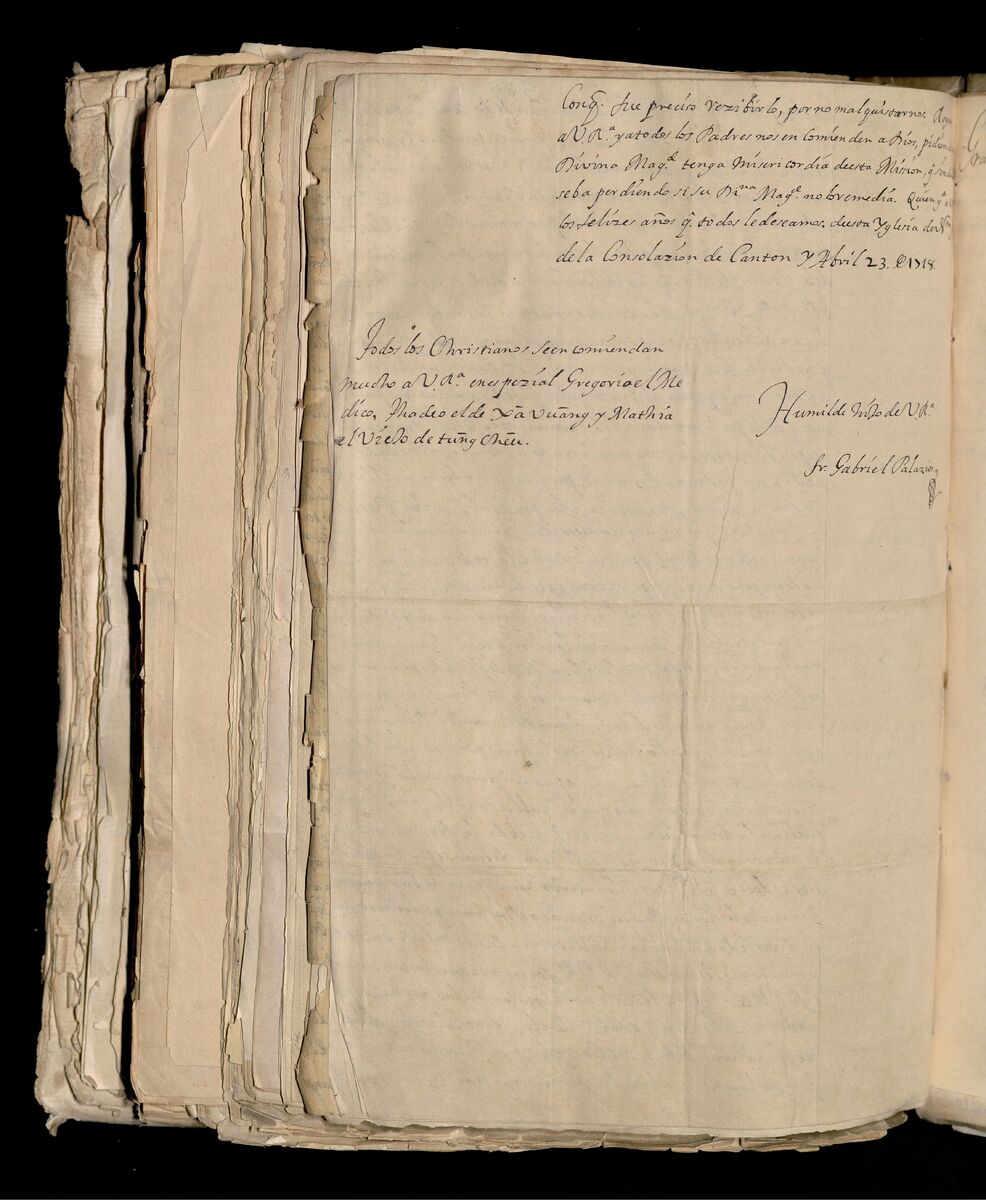 Conq̃. fue preciso rezibirlo, por no mal quistarnos.
a V. R.ª y a todos los Padres nos en comienden a Dios,
Divina Mag.ᵈ tenga Misericordia deesta Mision, q̃
seba perdiendo si su Di.ⁿᵃ Mag.ᵈ no lo remedia. Quien g.ᵉ
los felizes años q̃ todos le deseamos. deesta Yglesia de
de la Consolazion de Canton Y Abril 23. de 1718.
Todos los Christianos se en comiendan
mucho a V. R.ª en espezial Gregorio el Me
dico, Thadeo el de Xā vuāng y Mathia
el Viejo de tung cheu.
Humilde hijo de V. R.ª
fr. Gabriel Palazios